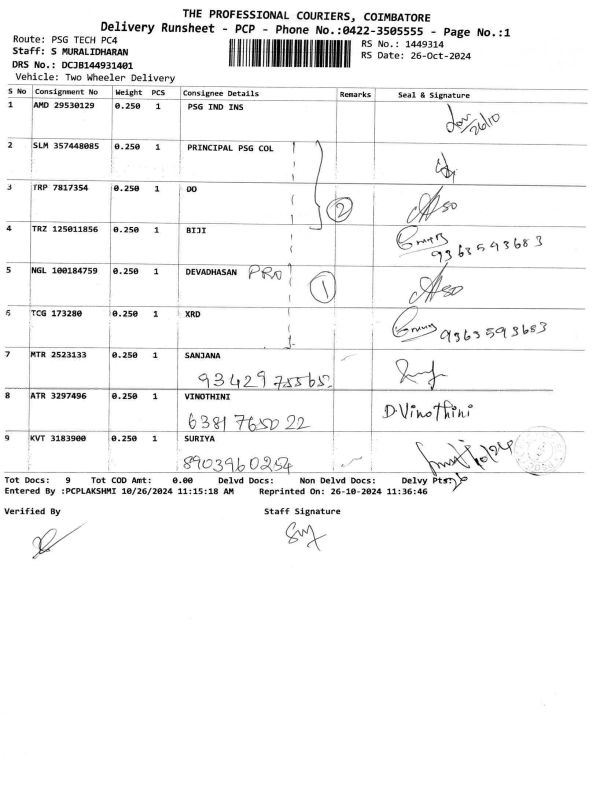 THE PROFESSIONAL COURIERS, COIMBATORE
Delivery Runsheet - PCP - Phone No.:0422-3505555 - Page No.:1
Route: PSG TECH PC4
RS No.: 1449314
Staff: S MURALIDHARAN
RS Date: 26-Oct-2024
DRS No.: DCJB144931401
Vehicle: Two Wheeler Delivery
S No Consignment No Weight PCS Consignee Details Remarks Seal & Signature
1 AMD 29530129 0.250 1 PSG IND INS
26/10
2 SLM 357448085 0.250 1 PRINCIPAL PSG COL
3 TRP 7817354 0.250 1 OO
2
4 TRZ 125011856 0.250 1 BIJI
9363593683
5 NGL 100184759 0.250 1 DEVADHASAN PRO
1
6 TCG 173280 0.250 1 XRD
9363593683
7 MTR 2523133 0.250 1 SANJANA
9342975565
8 ATR 3297496 0.250 1 VINOTHINI
6381765022
D Vinothini
9 KVT 3183900 0.250 1 SURIYA
8903960254
Tot Docs: 9 Tot COD Amt: 0.00 Delvd Docs: Non Delvd Docs: Delvy Pts:
Entered By :PCPLAKSHMI 10/26/2024 11:15:18 AM Reprinted On: 26-10-2024 11:36:46
Verified By Staff Signature